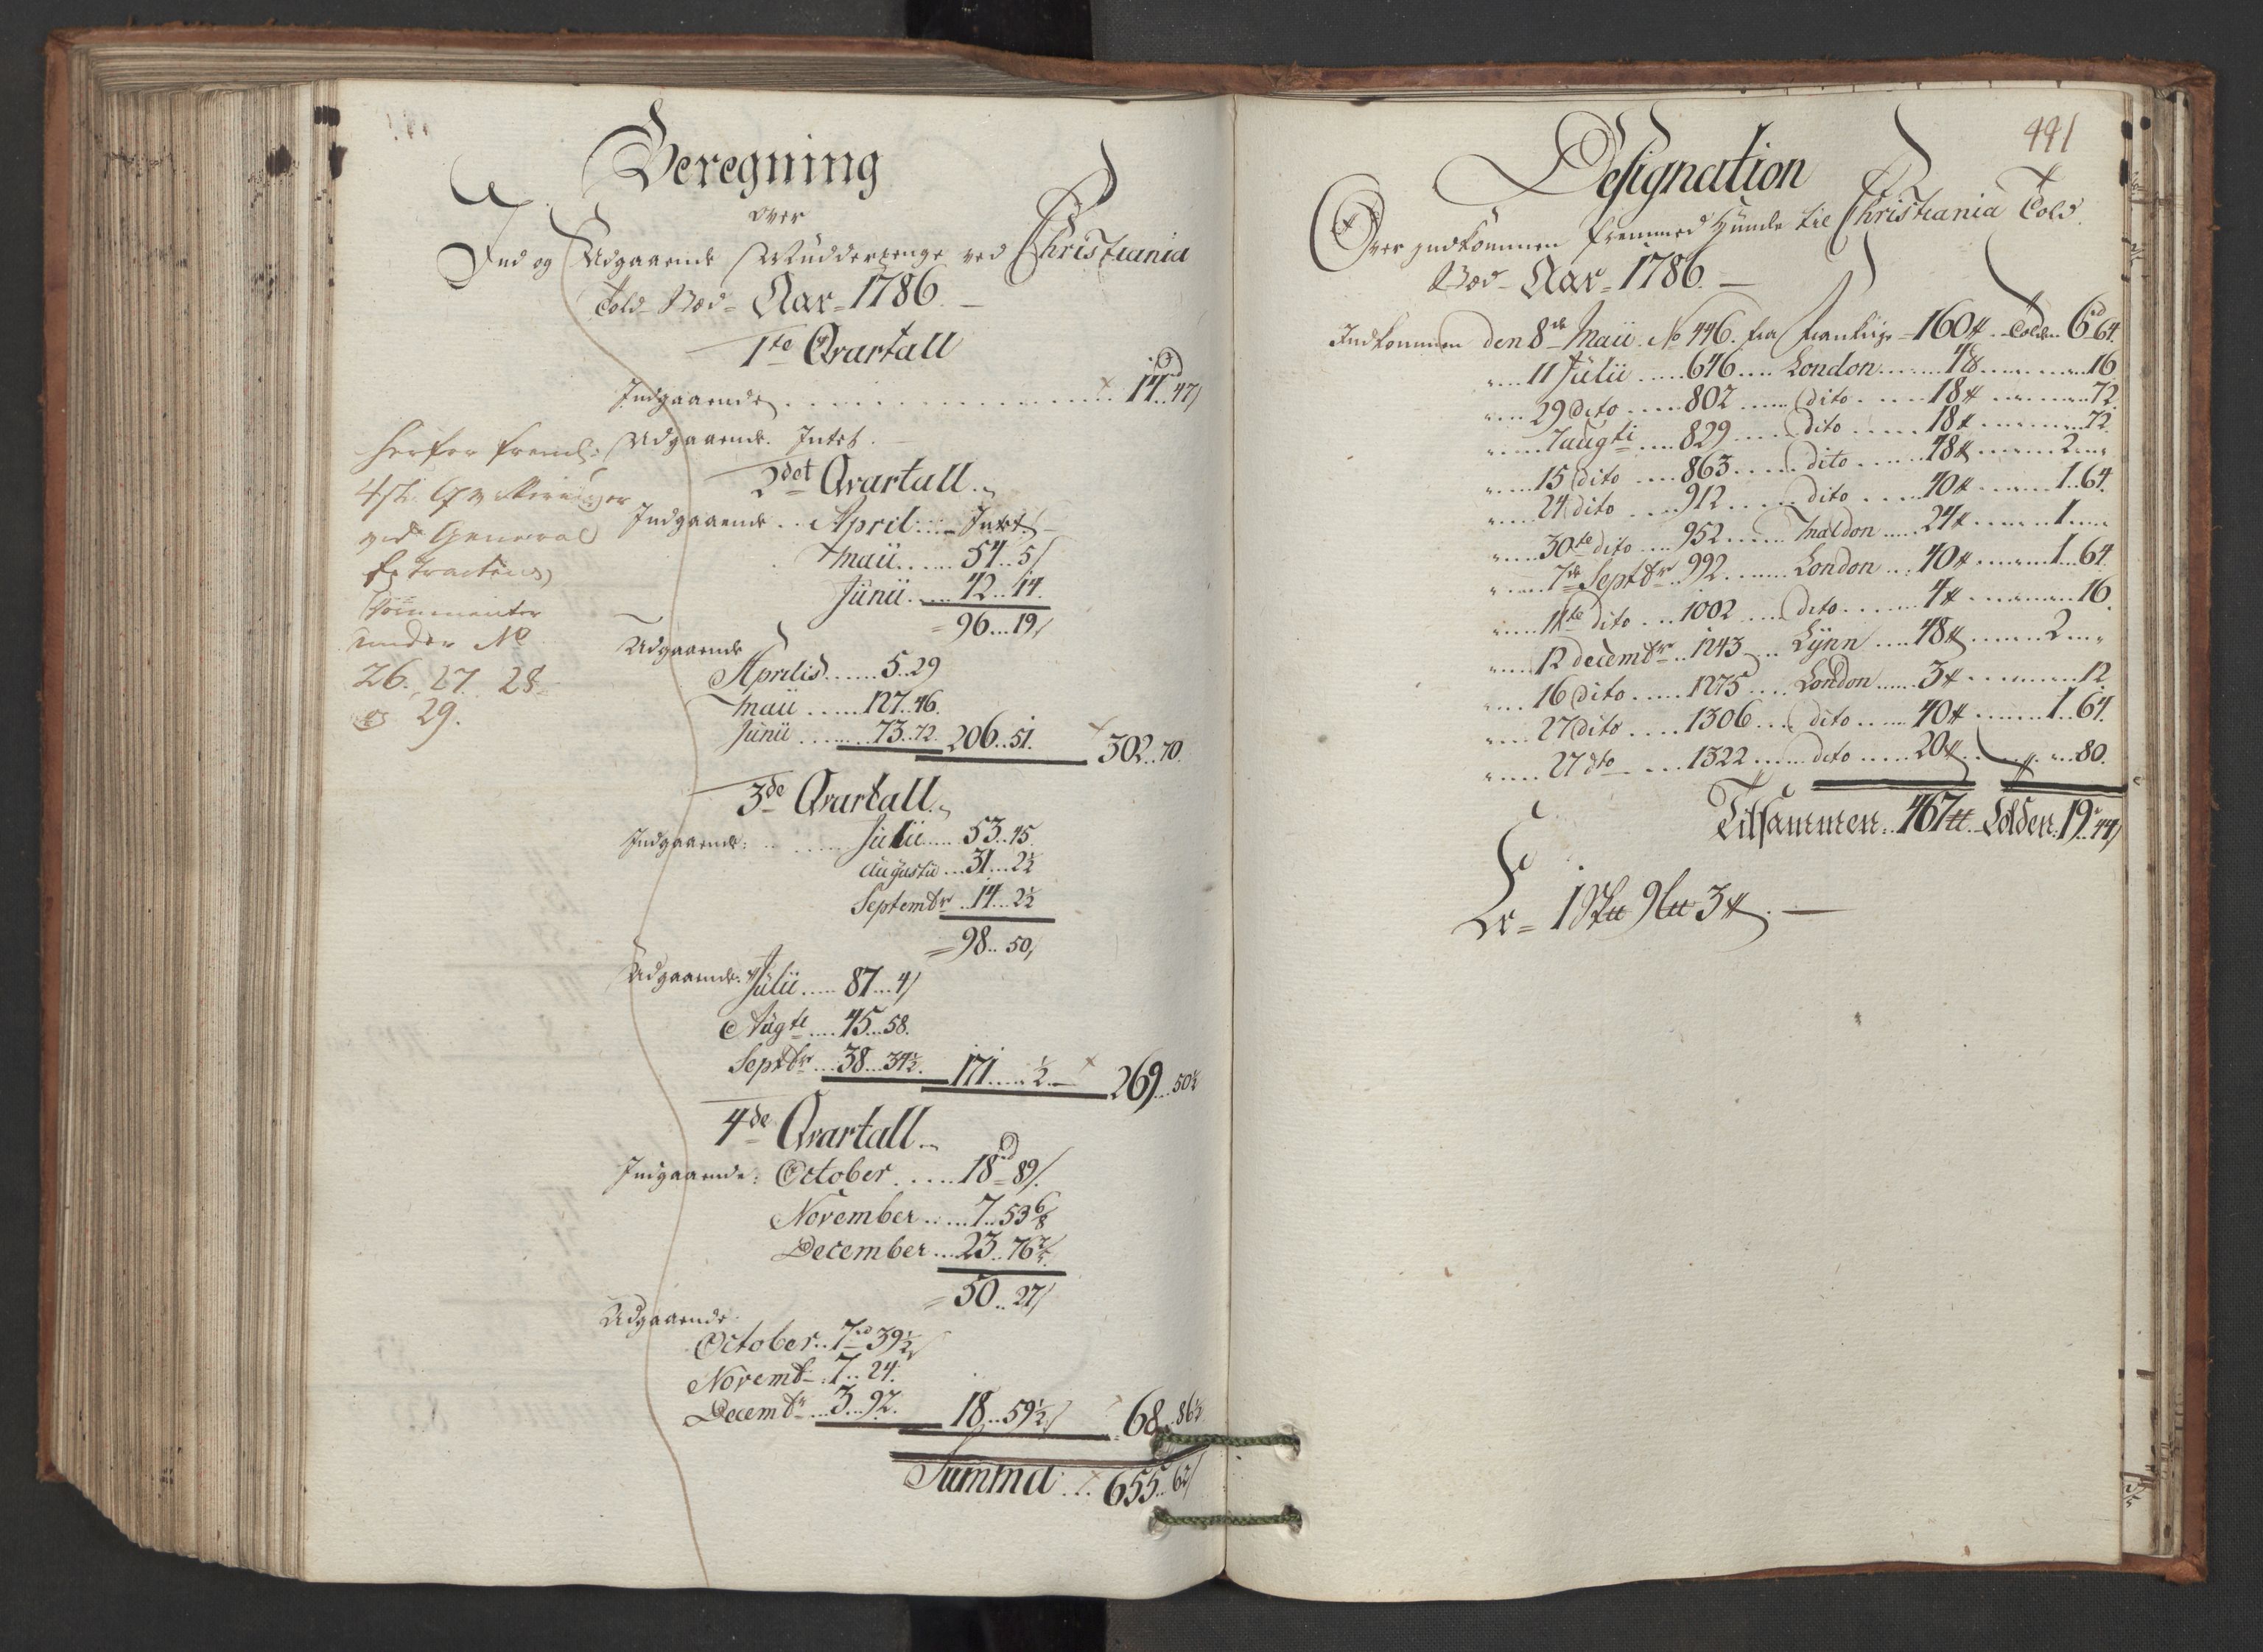 Beregning
over
Ind og Udgaaende Mudderpenge ved Christiania
Told-Sted Aar 1786
1te Qvartall
Indgaaende . . . 14 47
Udgaaende Intet
2det Qvartall
Indgaaende . . April . . . Intet
Maii . . . . 54 . . 5
Junii . . . . 42 . . 14
= 96 . . 19
Udgaaende
Aprilis . . . . 5 . 29
Maii . . . . 127 . 46
Junii . . . . 73 . 72 206 . . 51 302 . . 70
3de Qvartall
Indgaaende: Julii . . . . 53 . . 45
Augustii . . . 31 . . 2½
Septembr . . 14 . . 2½
= 98 . . 50
Udgaaende Julii . . . . 87 . . . 4
Augti . . . 45 . . 58
Septbr . . . 38 . . 34½ 171 . . . ½ 269 . . 50½
4de Qvartall
Indgaaende: October . . . . 18 rd 89
November . . . . 7 . . 53 6/8
December . . . 23 . . 76 2/8
= 50 . . 27
Udgaaende
October . . 7 rd 39½
Novembr . 7 . . 24
Decembr . . 3 . . 92 18 . . 59½ 68 . . 86½
Summa . . 655 . . 62
herfor freml:
4 st. Qv
ved General
Extracten
Documenter
under No
26. 27. 28
og 29.
441
Designation
Over indkommen fremmed Humle til Christiania Told
Sted Aar 1786
Indkommen den 8de Maii No 446 fra 160 ℔ Told 6 rd 64
11 Julii . . . 646 . . . London . . . 4 ℔ . . . 16
29 dito . . . 802 . . . dito . . . 18 ℔ . . . 72
7 augti . . . 829 . . . dito . . . 18 ℔ . . . 72
15 dito . . . 863 . . . dito . . . 48 ℔ . . . 2 . . .
24 dito . . . 912 . . . dito . . . 40 ℔ . . . 1 . . 64
30te dito . . . 952 . . . Maldon . . . 24 ℔ . . . 1 . . .
7de Septbr . . 992 . . . London . . . 40 ℔ . . . 1 . . 64
11te dito . . . 1002 . . . dito . . . 4 ℔ . . . 16
12 decembr . . 1243 . . . Lynn . . . 48 ℔ . . . 2 . . .
16 dito . . . 1275 . . . London . . . 3 ℔ . . . 12
27 dito . . . 1306 . . . dito . . . 40 ℔ . . . 1 . . 64
27 dto . . . 1322 . . . dito . . . 20 ℔ . . . 80
Tilsammen 467 ℔ Tolden 19 . . 44
Er = 1 9 3 ℔